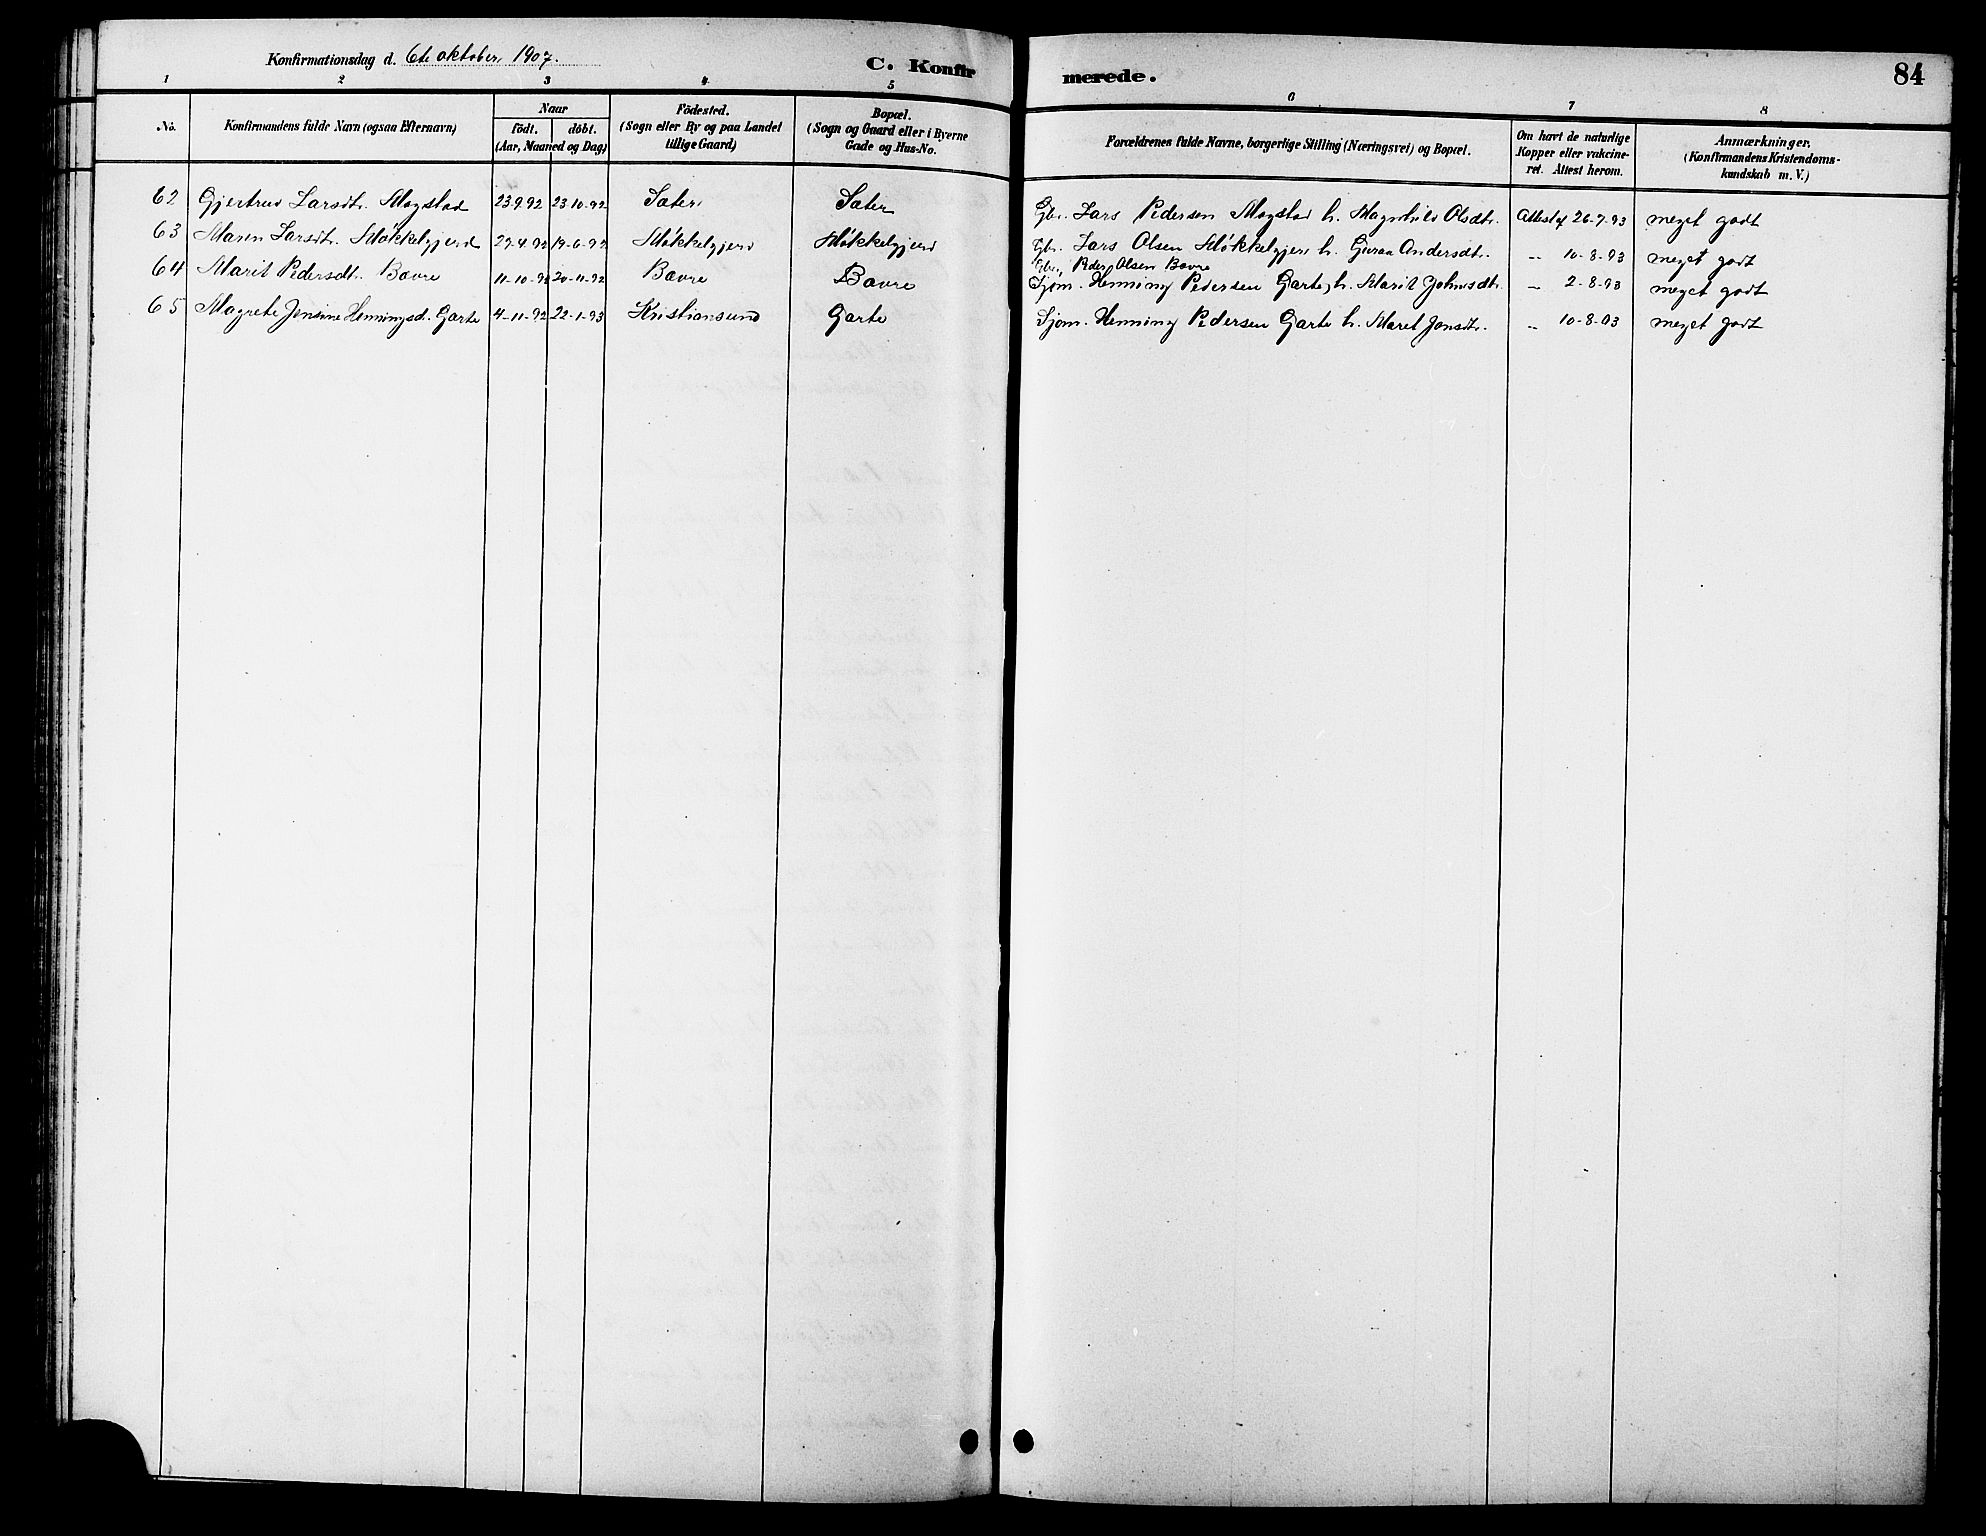 Konfirmationsdag d. 6te oktober, 1907. C. Konfirmerede. 84
1 2 3 4 5 6 7 8
No. Konfirmandens fulde Navn (ogsaa Efternavn) Naar födt. döbt. (Aar, Maaned og Dag) Födested. (Sogn eller By og paa Landet tillige Gaard) Bopæl. (Sogn og Gaard eller i Byerne Gade og Hus-No. Forældrenes fulde Navne, borgerlige Stilling (Næringsvei) og Bopæl. Om havt de naturlige Kopper eller vakcineret. Attest herom. Anmærkninger. (Konfirmandens Kristendomskundskab m. V.)
62 Gjertrud Larsdtr. Mogstad 23.9.92 23-10-92 Sæter Sæter Gbr. Lars Pedersen Mogstad h. Magnhild Olsdtr. Attest af 26-7-93 meget godt
63 Maren Larsdtr. Møkkelgjerd 29-4-92 19-6-92 Møkkelgjerd Møkkelgjerd Gbr. Lars Olsen Møkkelgjerd h. Guraa Andersdtr. -"- 10-8-93 meget godt
Gbr. Peder Olsen Bævre
64 Marit Pedersdt. Bævre 11-10-92 20-11-92 Bævre Bævre Sjøm. Henning Pedersen Garte, h. Marit Johnsdtr. -"- 2-8-93 meget godt
65 Magrete Jensine Henningsd. Garte 4-11-92 22-1-93 Kristiansund Garte Sjøm. Henning Pedersen Garte h. Maret Jonsdtr. -"- 10-8-03 meget godt